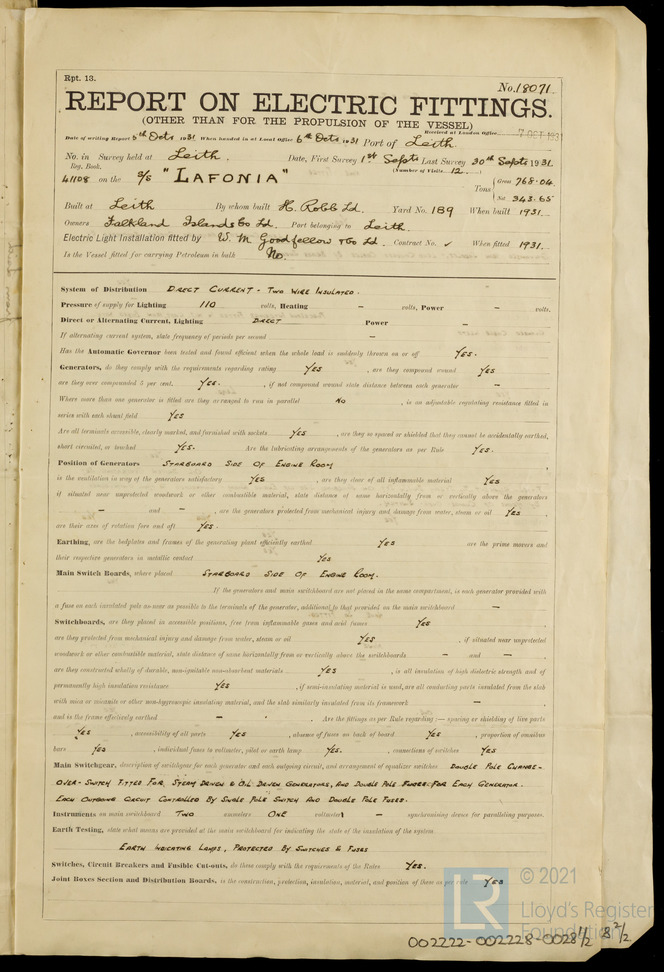 Rpt. 13.
No. 18071
REPORT ON ELECTRIC FITTINGS.
(OTHER THAN FOR THE PROPULSION OF THE VESSEL)
Received at London Office 7 OCT 1931
Date of writing Report 5th Octr 1931 When handed in at Local Office 6th Octr 1931 Port of Leith.
No. in Survey held at Leith. Date, First Survey 1st Septr Last Survey 30th Septr 1931.
Reg. Book. (Number of Visits 12.)
41108 on the S/S "LAFONIA" Tons Gross 768.04 Net 343.65
Built at Leith By whom built H. Robb Ld. Yard No. 189 When built 1931.
Owners Falkland Islands Co Ld. Port belonging to Leith.
Electric Light Installation fitted by W. M. Goodfellow & Co Ld. Contract No. ✓ When fitted 1931.
Is the Vessel fitted for carrying Petroleum in bulk No.
System of Distribution DIRECT CURRENT - TWO WIRE INSULATED.
Pressure of supply for Lighting 110 volts, Heating - volts, Power - volts.
Direct or Alternating Current, Lighting DIRECT Power -
If alternating current system, state frequency of periods per second -
Has the Automatic Governor been tested and found efficient when the whole load is suddenly thrown on or off YES.
Generators, do they comply with the requirements regarding rating YES, are they compound wound YES
are they over compounded 5 per cent. YES., if not compound wound state distance between each generator -
Where more than one generator is fitted are they arranged to run in parallel NO, is an adjustable regulating resistance fitted in
series with each shunt field YES
Are all terminals accessible, clearly marked, and furnished with sockets YES, are they so spaced or shielded that they cannot be accidentally earthed,
short circuited, or touched YES. Are the lubricating arrangements of the generators as per Rule YES.
Position of Generators STARBOARD SIDE OF ENGINE ROOM
is the ventilation in way of the generators satisfactory YES, are they clear of all inflammable material YES
if situated near unprotected woodwork or other combustible material, state distance of same horizontally from or vertically above the generators
- and -, are the generators protected from mechanical injury and damage from water, steam or oil YES,
are their axes of rotation fore and aft YES.
Earthing, are the bedplates and frames of the generating plant efficiently earthed YES are the prime movers and
their respective generators in metallic contact YES
Main Switch Boards, where placed STARBOARD SIDE OF ENGINE ROOM.
If the generators and main switchboard are not placed in the same compartment, is each generator provided with
a fuse on each insulated pole as near as possible to the terminals of the generator, additional to that provided on the main switchboard -
Switchboards, are they placed in accessible positions, free from inflammable gases and acid fumes YES
are they protected from mechanical injury and damage from water, steam or oil YES, if situated near unprotected
woodwork or other combustible material, state distance of same horizontally from or vertically above the switchboards - and -,
are they constructed wholly of durable, non-ignitable non-absorbent materials YES, is all insulation of high dielectric strength and of
permanently high insulation resistance YES, if semi-insulating material is used, are all conducting parts insulated from the slab
with mica or micanite or other non-hygroscopic insulating material, and the slab similarly insulated from its framework -
and is the frame effectively earthed - . Are the fittings as per Rule regarding :— spacing or shielding of live parts
YES, accessibility of all parts YES, absence of fuses on back of board YES, proportion of omnibus
bars YES, individual fuses to voltmeter, pilot or earth lamp YES., connections of switches YES
Main Switchgear, description of switchgear for each generator and each outgoing circuit, and arrangement of equalizer switches DOUBLE POLE CHANGE-
OVER-SWITCH FITTED FOR STEAM DRIVEN & OIL DRIVEN GENERATORS, AND DOUBLE POLE FUSES FOR EACH GENERATOR.
EACH OUTGOING CIRCUIT CONTROLLED BY SINGLE POLE SWITCH AND DOUBLE POLE FUSES.
Instruments on main switchboard TWO ammeters ONE voltmeter - synchronising device for paralleling purposes.
Earth Testing, state what means are provided at the main switchboard for indicating the state of the insulation of the system
EARTH INDICATING LAMPS, PROTECTED BY SWITCHES & FUSES
Switches, Circuit Breakers and Fusible Cut-outs, do these comply with the requirements of the Rules YES.
Joint Boxes Section and Distribution Boards, is the construction, protection, insulation, material, and position of these as per rule YES
© 2021
LR
Lloyd's Register
Foundation
002222-002228-0028 1/2 B 2/2